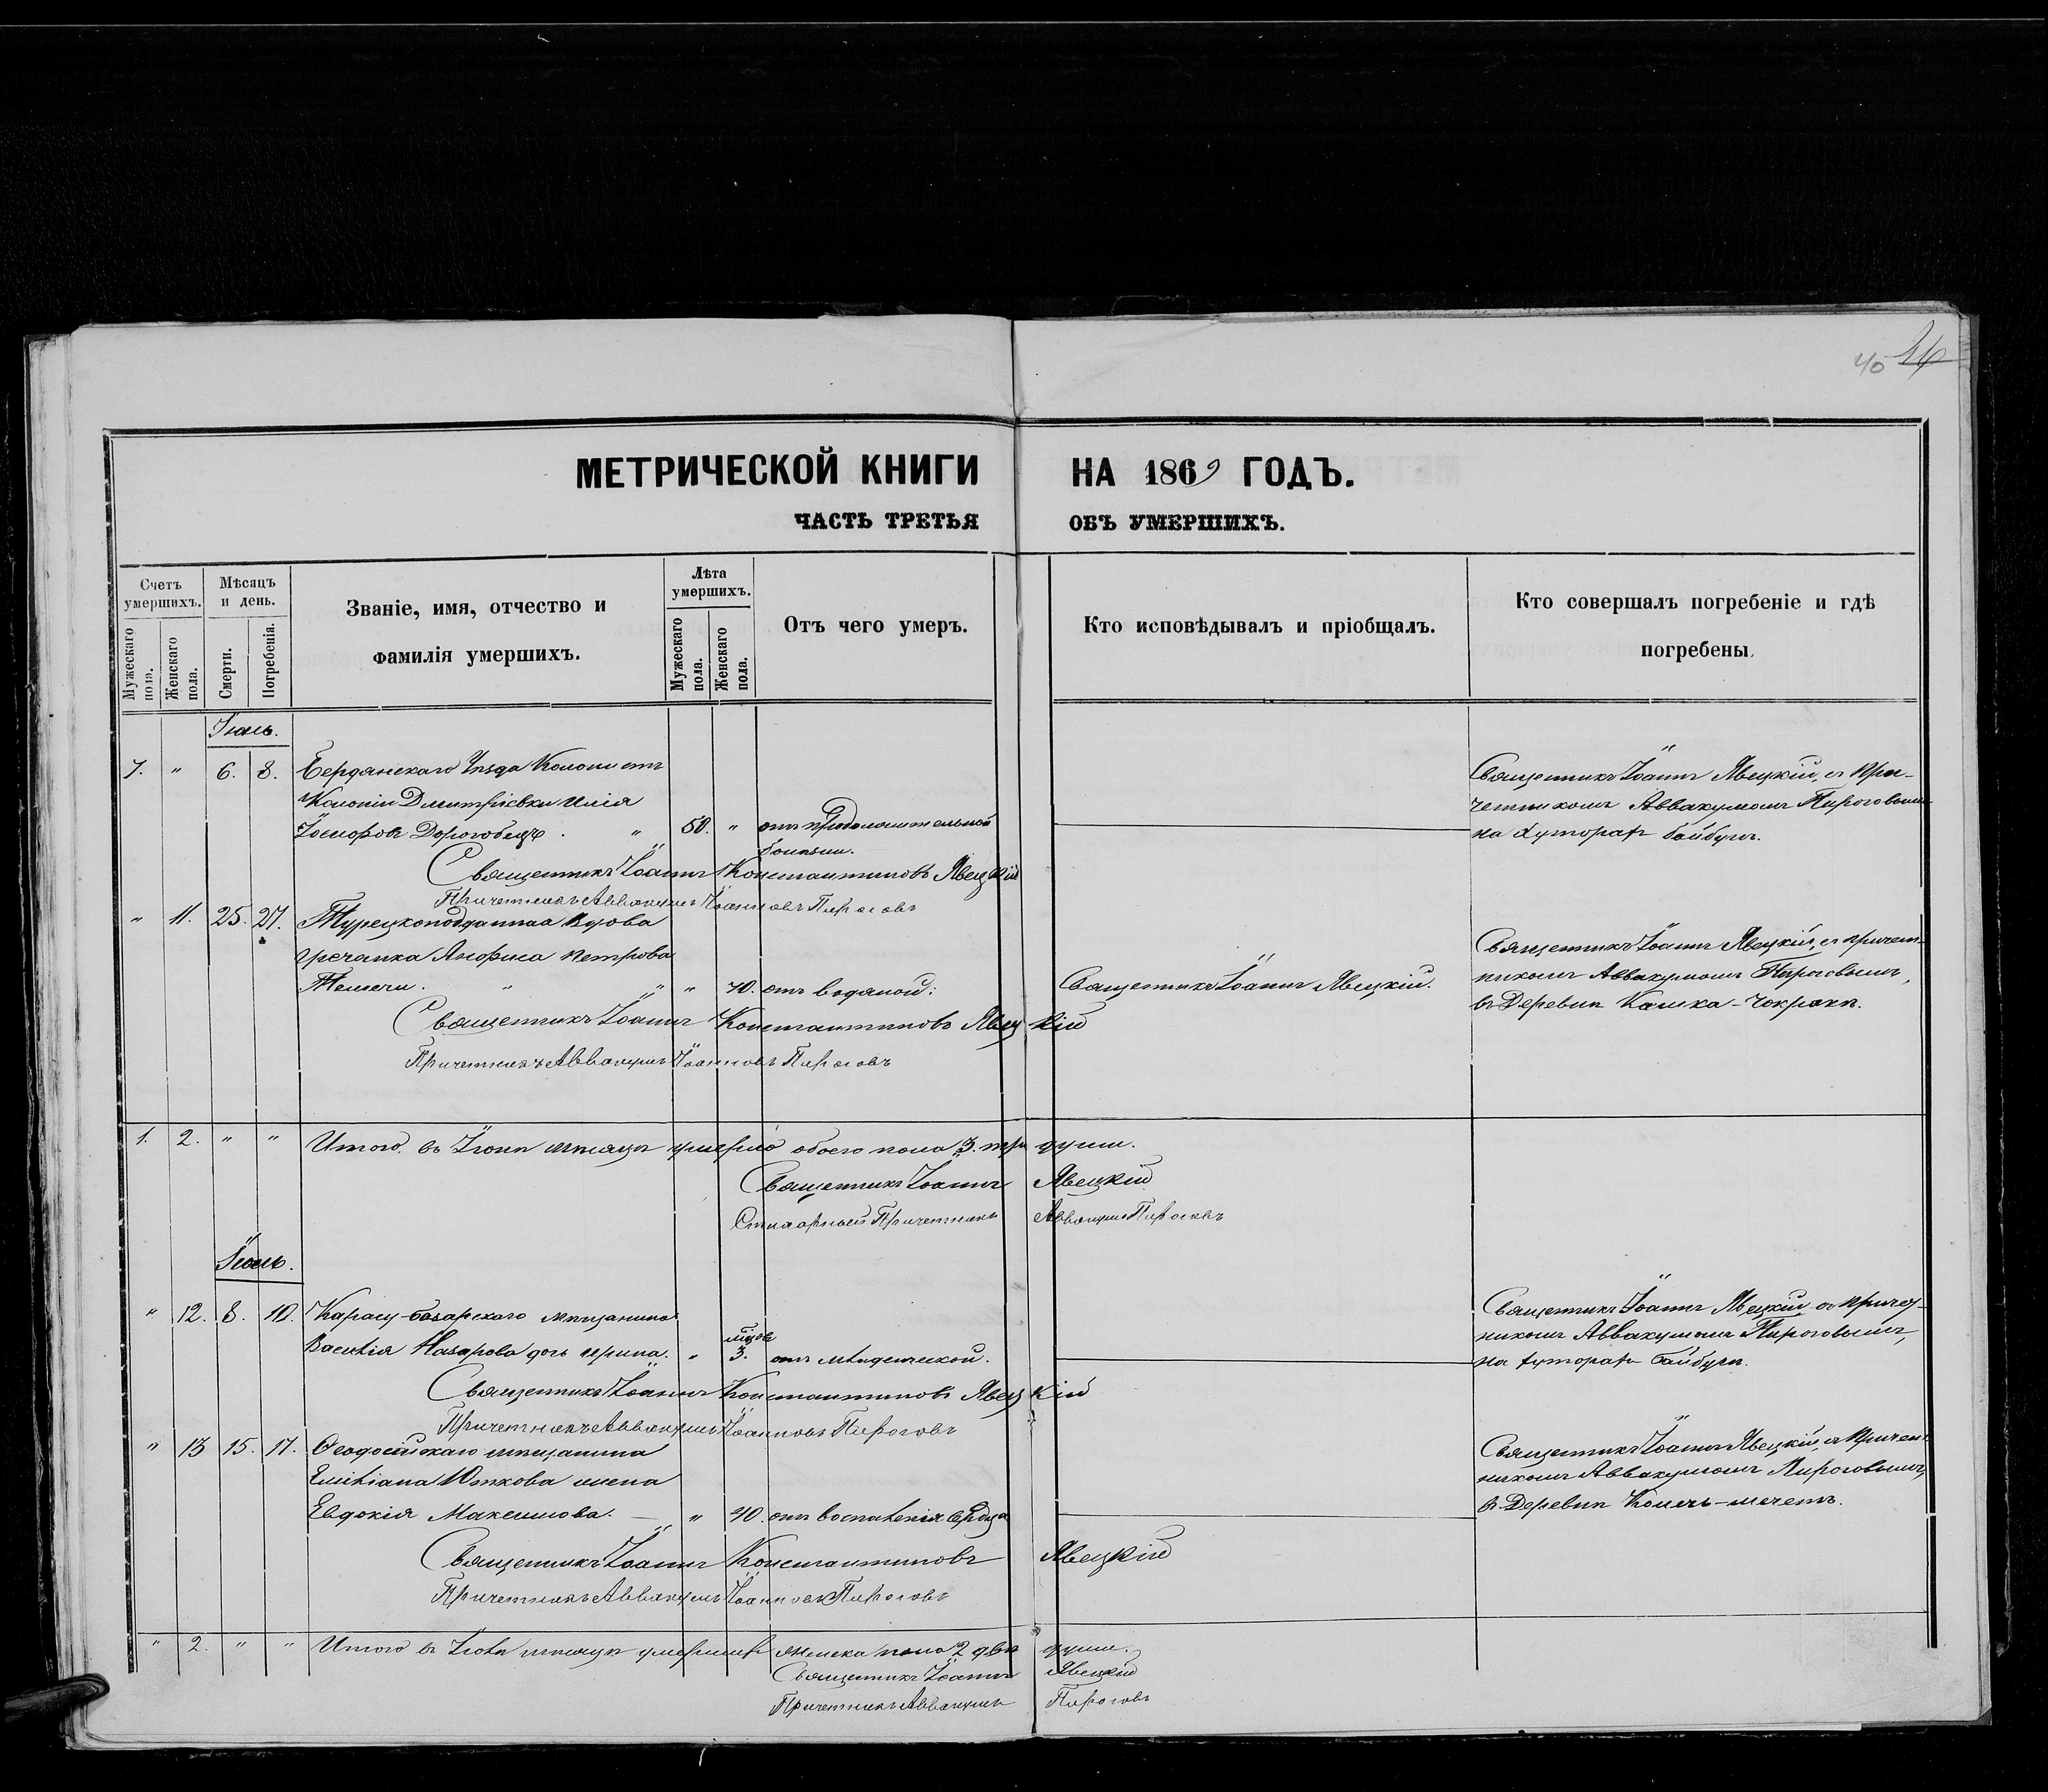 40 14
МЕТРИЧЕСКОЙ КНИГИ НА 1869 ГОДЪ.
ЧАСТЬ ТРЕТЬЯ ОБЪ УМЕРШИХЪ.
Счетъ умершихъ.
Мужескаго пола.
Женскаго пола.
Мѣсяцъ и день.
Смерти.
Погребенія.
Званіе, имя, отчество и фамилія умершихъ.
Лѣта умершихъ.
Мужескаго пола.
Женскаго пола.
Отъ чего умеръ.
Кто исповѣдывалъ и пріобщалъ.
Кто совершалъ погребеніе и гдѣ погребены.
7. " 6. 8. Бердянскаго Уѣзда Колонистъ
Колоніи Дмитріевки Илія
Іосифовъ " 50. " отъ продолжительной
болѣзни.
Священникъ Іоаннъ Явецкій, съ при-
четникомъ Аввакумомъ Пироговымъ
на хуторахъ Байбуги.
Священникъ Іоаннъ Константиновъ Явецкій
Причетникъ Аввакумъ Іоанновъ Пироговъ
" 11. 25. 27. Турецкоподданная вдова
гречанка Анфиса Петрова
" " " 70. отъ водяной.
Священникъ Іоаннъ Явецкій.
Священникъ Іоаннъ Явецкій, съ причет-
никомъ Аввакумомъ Пироговымъ,
въ Деревни Кашка-Чокракъ.
Священникъ Іоаннъ Константиновъ Явецкій
Причетникъ Аввакумъ Іоанновъ Пироговъ
1. 2. " " Итого въ Іюнѣ мѣсяцѣ умерло обоего пола 3. три души.
Священникъ Іоаннъ Явецкій
Стихарный Причетникъ Аввакумъ Пироговъ
Іюль.
" 12. 8. 10. Карасу-базарскаго мѣщанина
Василія Назарова дочь Ирина. " 3. отъ младенческой.
Священникъ Іоаннъ Явецкій съ причет-
никомъ Аввакумомъ Пироговымъ,
на хуторахъ Байбуги.
Священникъ Іоаннъ Константиновъ Явецкій
Причетникъ Аввакумъ Іоанновъ Пироговъ
" 13 15. 17. Ѳеодосійскаго мѣщанина
Емиліана Юткова жена
Евдокія Максимова. " 40. отъ воспаленія сердца
Священникъ Іоаннъ Явецкій, съ причет-
никомъ Аввакумомъ Пироговымъ,
въ Деревни Копечь-мечеть.
Священникъ Іоаннъ Константиновъ Явецкій
Причетникъ Аввакумъ Іоанновъ Пироговъ
" 2. " " Итого въ Іюлѣ мѣсяцѣ умершихъ женска пола 2 двѣ души.
Священникъ Іоаннъ Явецкій
Причетникъ Аввакумъ Пироговъ